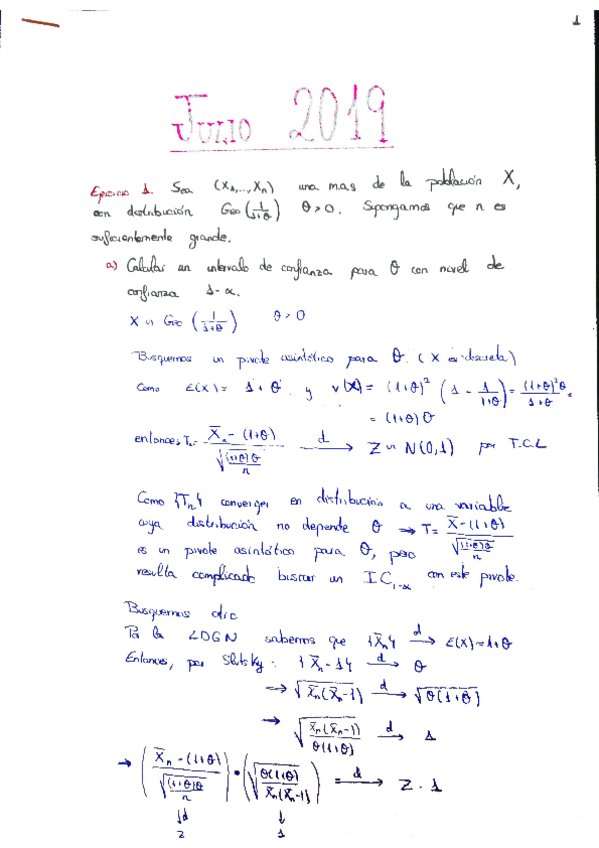 1
JULIO 2019
Ejercicio 1. Sea (X₁,...,Xₙ) una mas de la población X,
con distribución Geo(1/(1+θ)) θ>0. Supongamos que n es
suficientemente grande.
a) Calcular un intervalo de confianza para θ con nivel de
confianza 1-α.
X ~ Geo (1/(1+θ)) θ>0
Busquemos un pivote asintótico para θ. (X es discreta)
Como E(X) = 1+θ y V(X) = (1+θ)² (1 - 1/(1+θ)) = (1+θ)²θ/(1+θ) =
= (1+θ)θ
entonces Tₙ = (X̄ₙ - (1+θ))/√((1+θ)θ/n) →d Z ~ N(0,1) por T.C.L
Como {Tₙ} converge en distribución a una variable
cuya distribución no depende θ → T = (X̄ - (1+θ))/√((1+θ)θ/n)
es un pivote asintótico para θ, pero
resulta complicado buscar un IC₁₋α con este pivote.
Busquemos otro
Por la LDGN sabemos que {X̄ₙ} →d E(X) = 1+θ
Entonces, por Slutsky: {X̄ₙ - 1} →d θ
→ √(X̄ₙ(X̄ₙ-1)) →d √(θ(1+θ))
→ √(X̄ₙ(X̄ₙ-1)/(θ(1+θ))) →d 1
→ ((X̄ₙ - (1+θ))/√((1+θ)θ/n)) · (√(θ(1+θ)/(X̄ₙ(X̄ₙ-1)))) ⇒d Z · 1
↓d ↓
Z 1